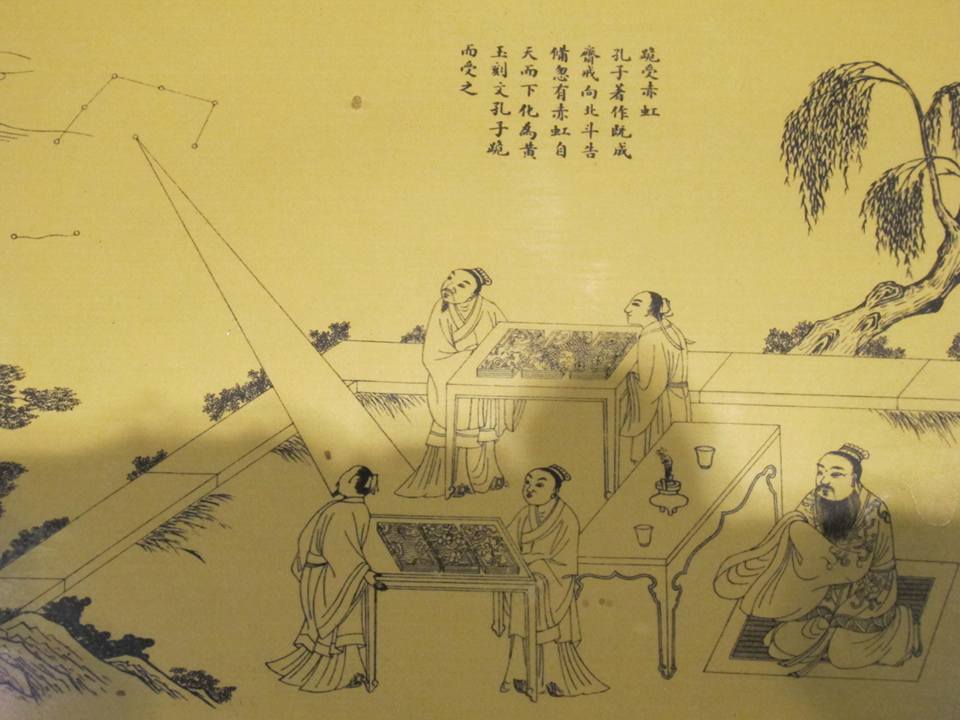 跪受赤虹
孔子著作既成
齋戒向北斗告
備忽有赤虹自
天而下化為黃
玉刻文孔子跪
而受之